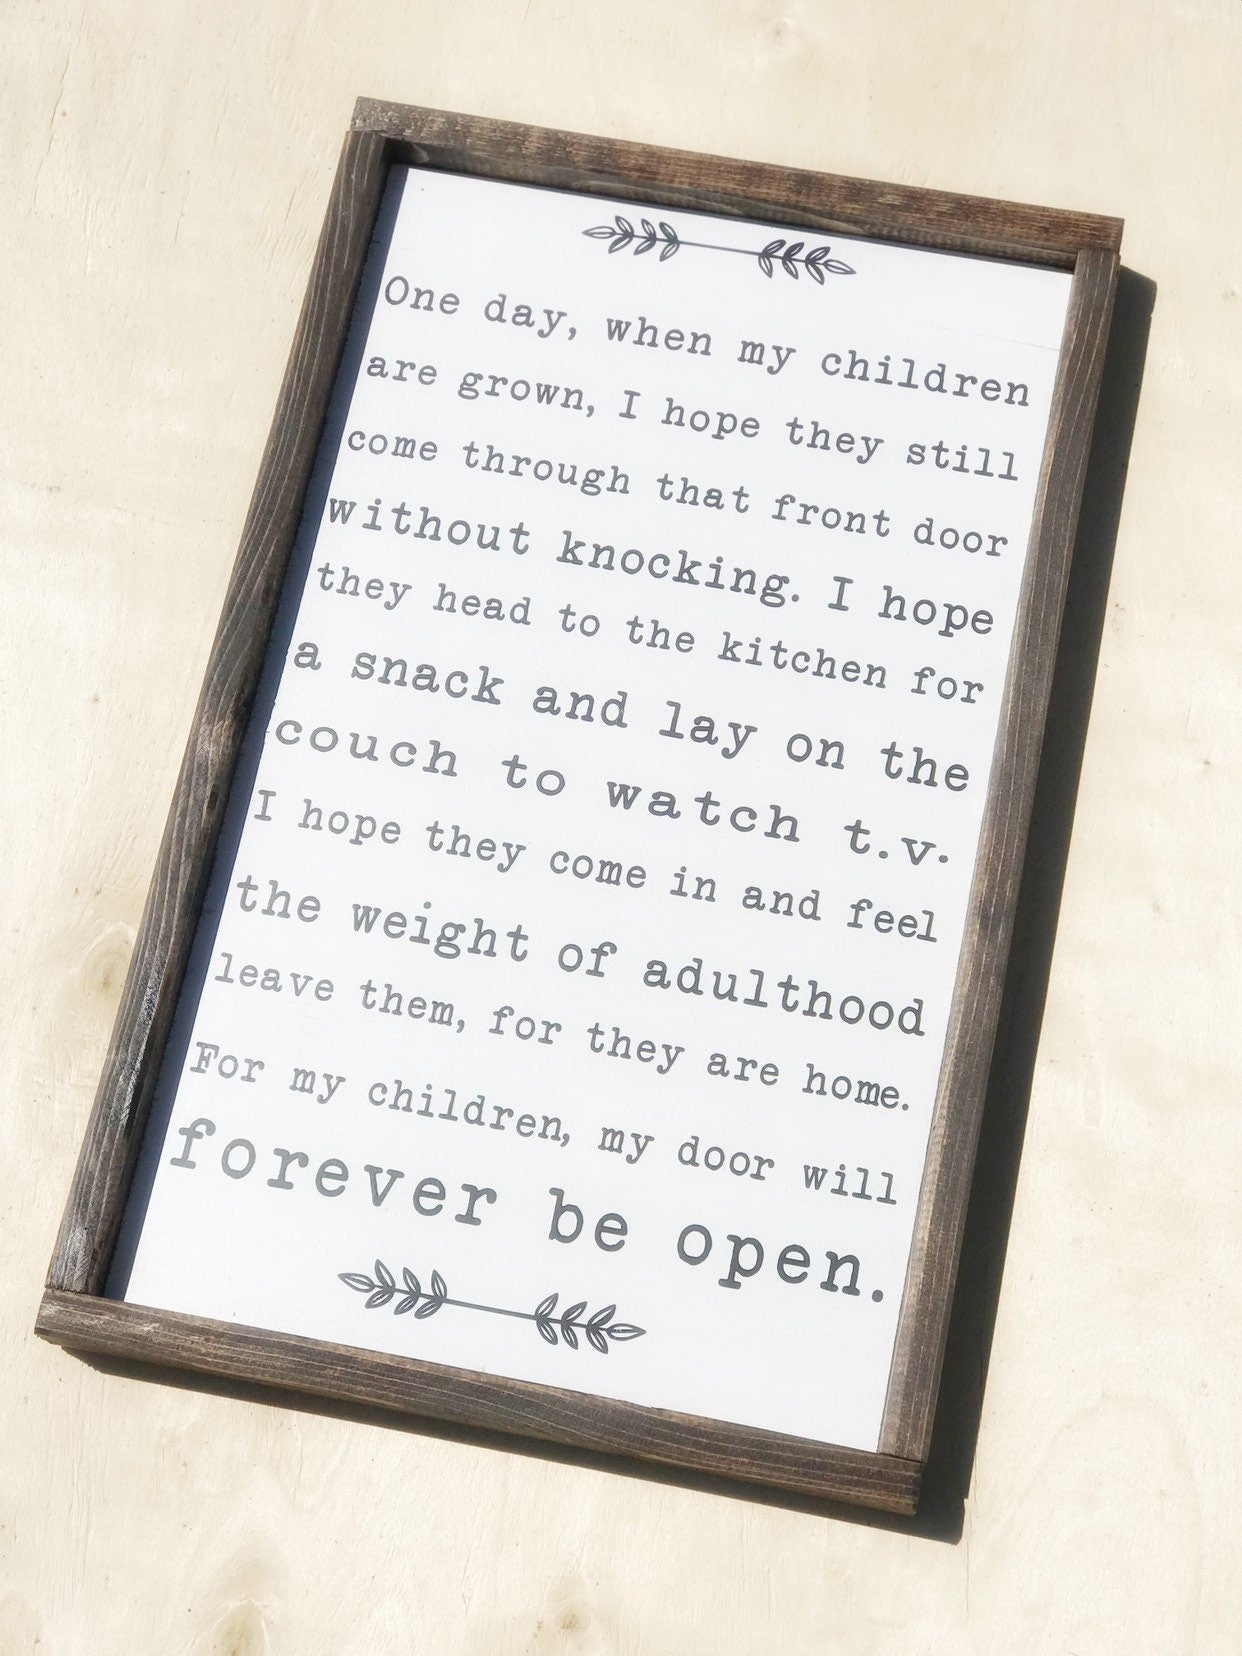 One day, when my children
are grown, I hope they still
come through that front door
without knocking. I hope
they head to the kitchen for
a snack and lay on the
couch to watch t.v.
I hope they come in and feel
the weight of adulthood
leave them, for they are home.
For my children, my door will
forever be open.